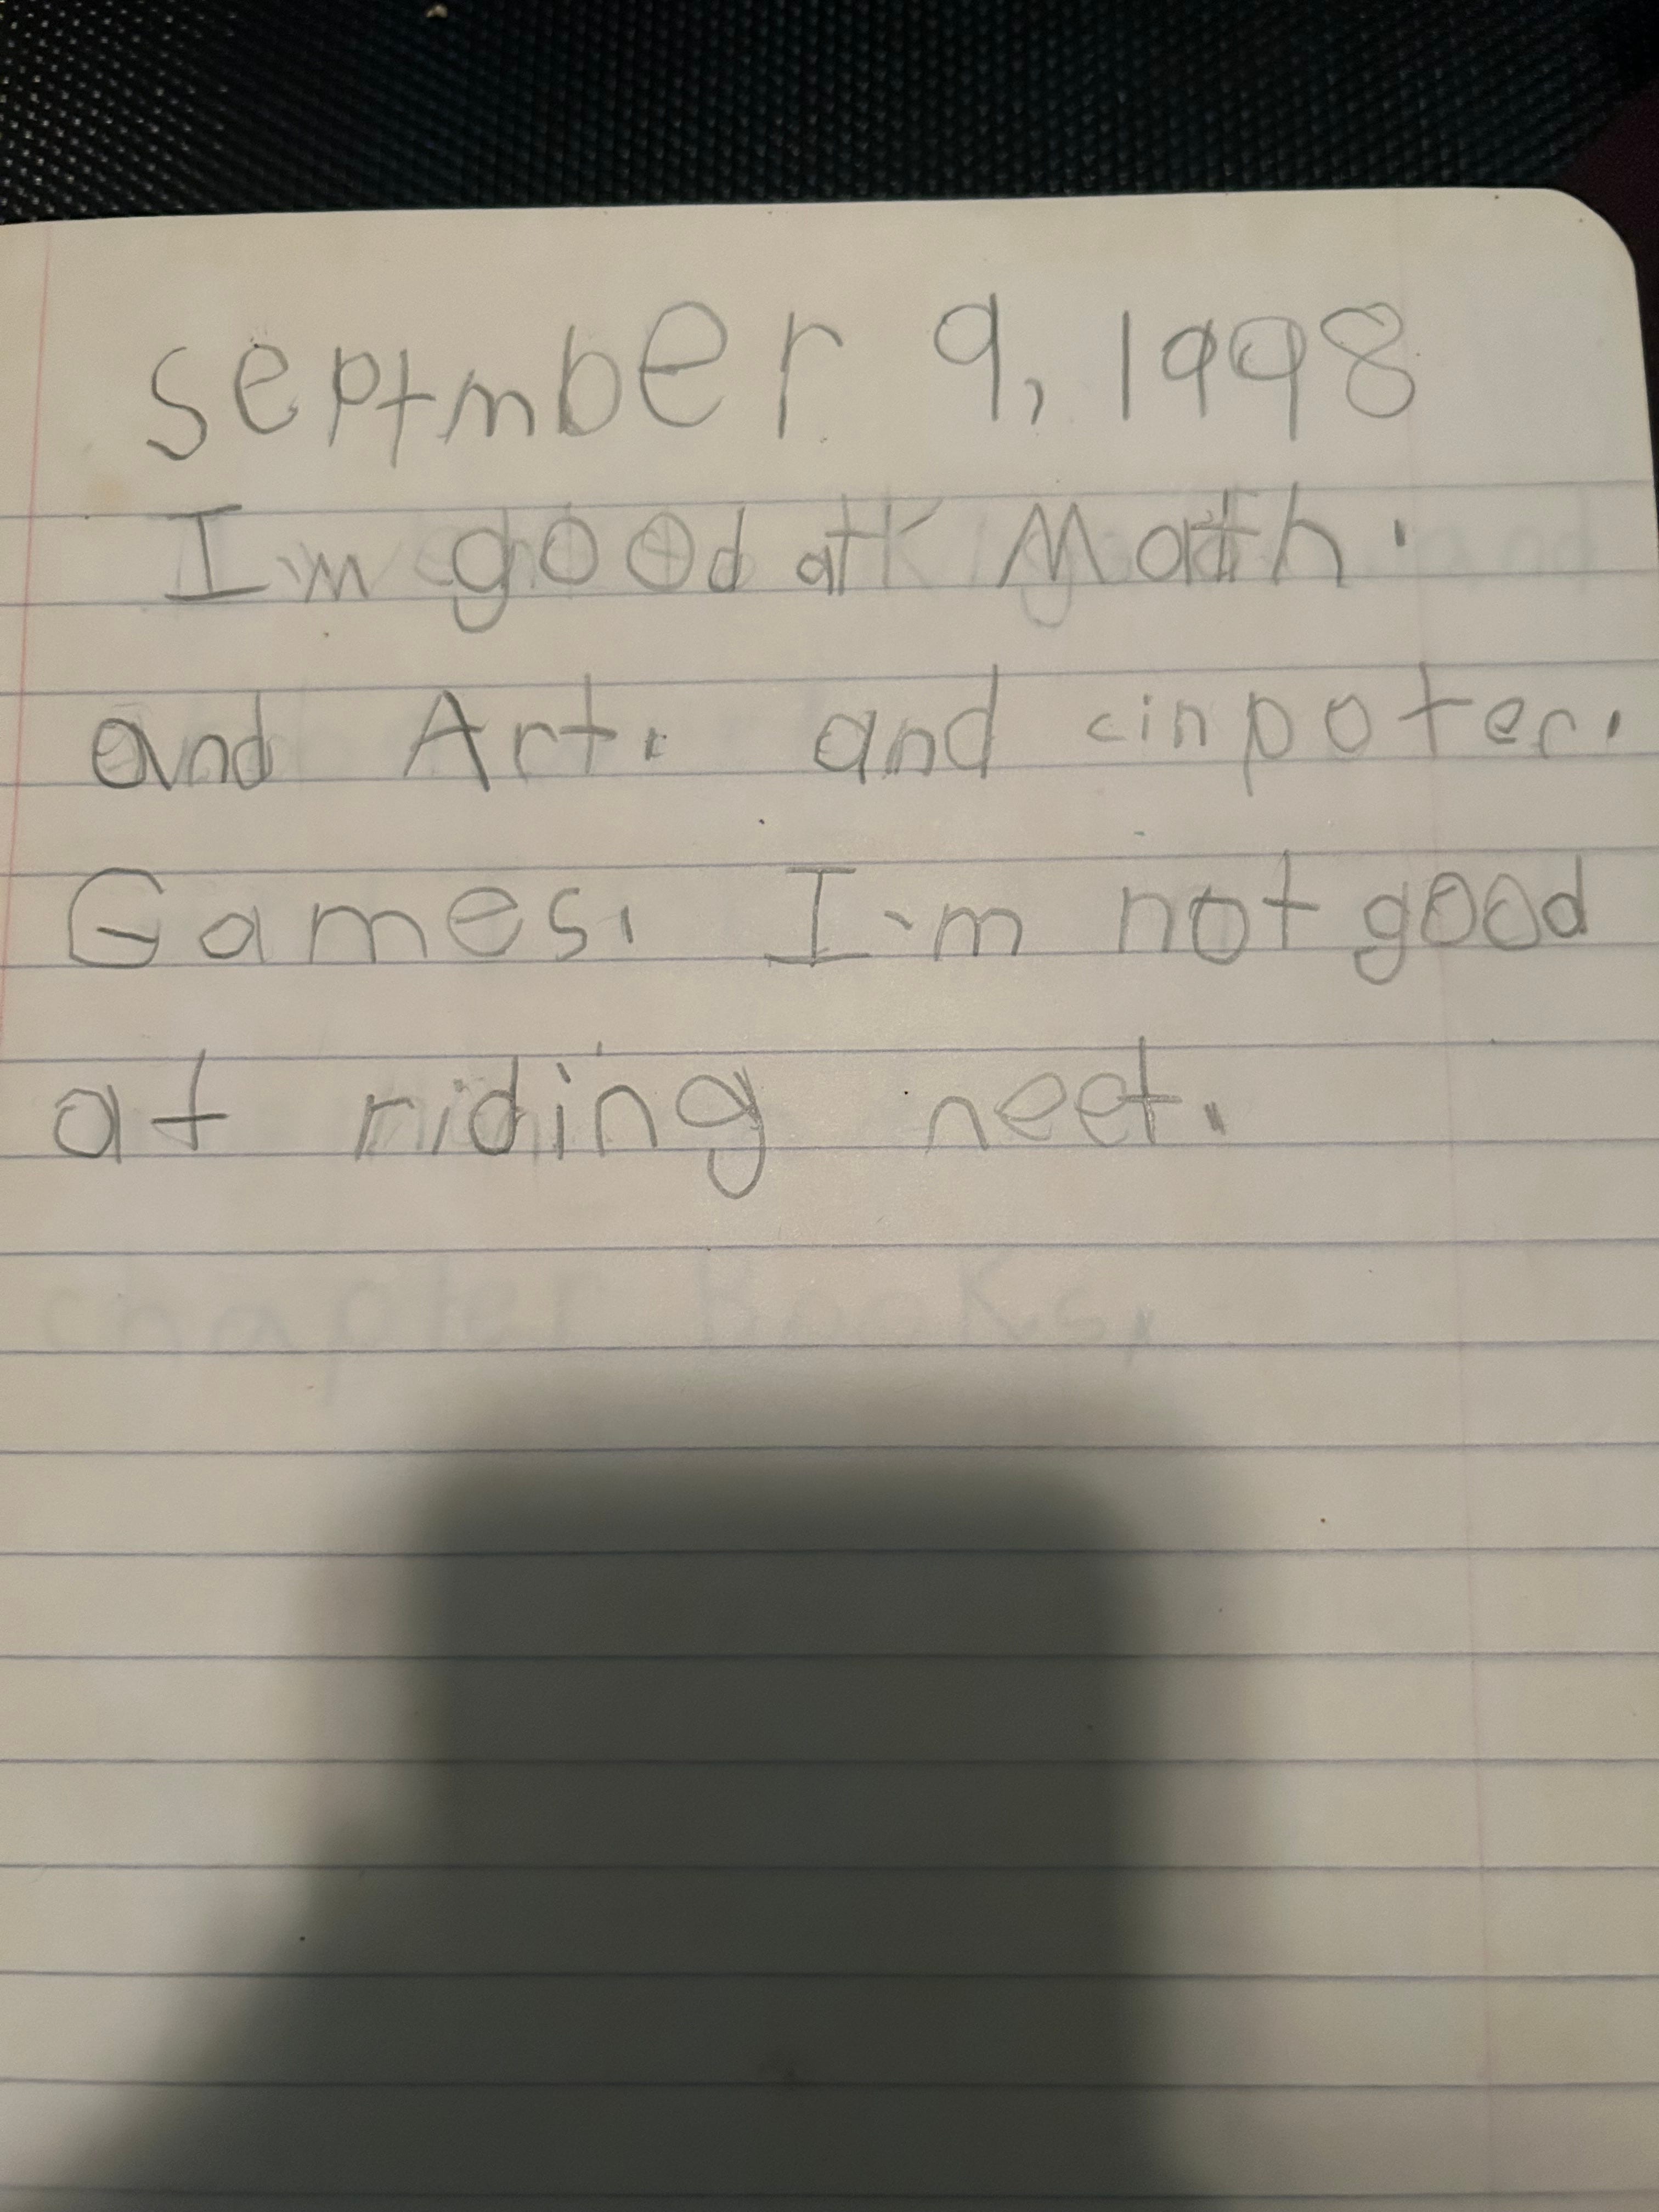 septmber 9, 1998
I'm good at Math.
and Art. and cinpoter.
Games. I'm not good
at riding neet.
chapter Books.